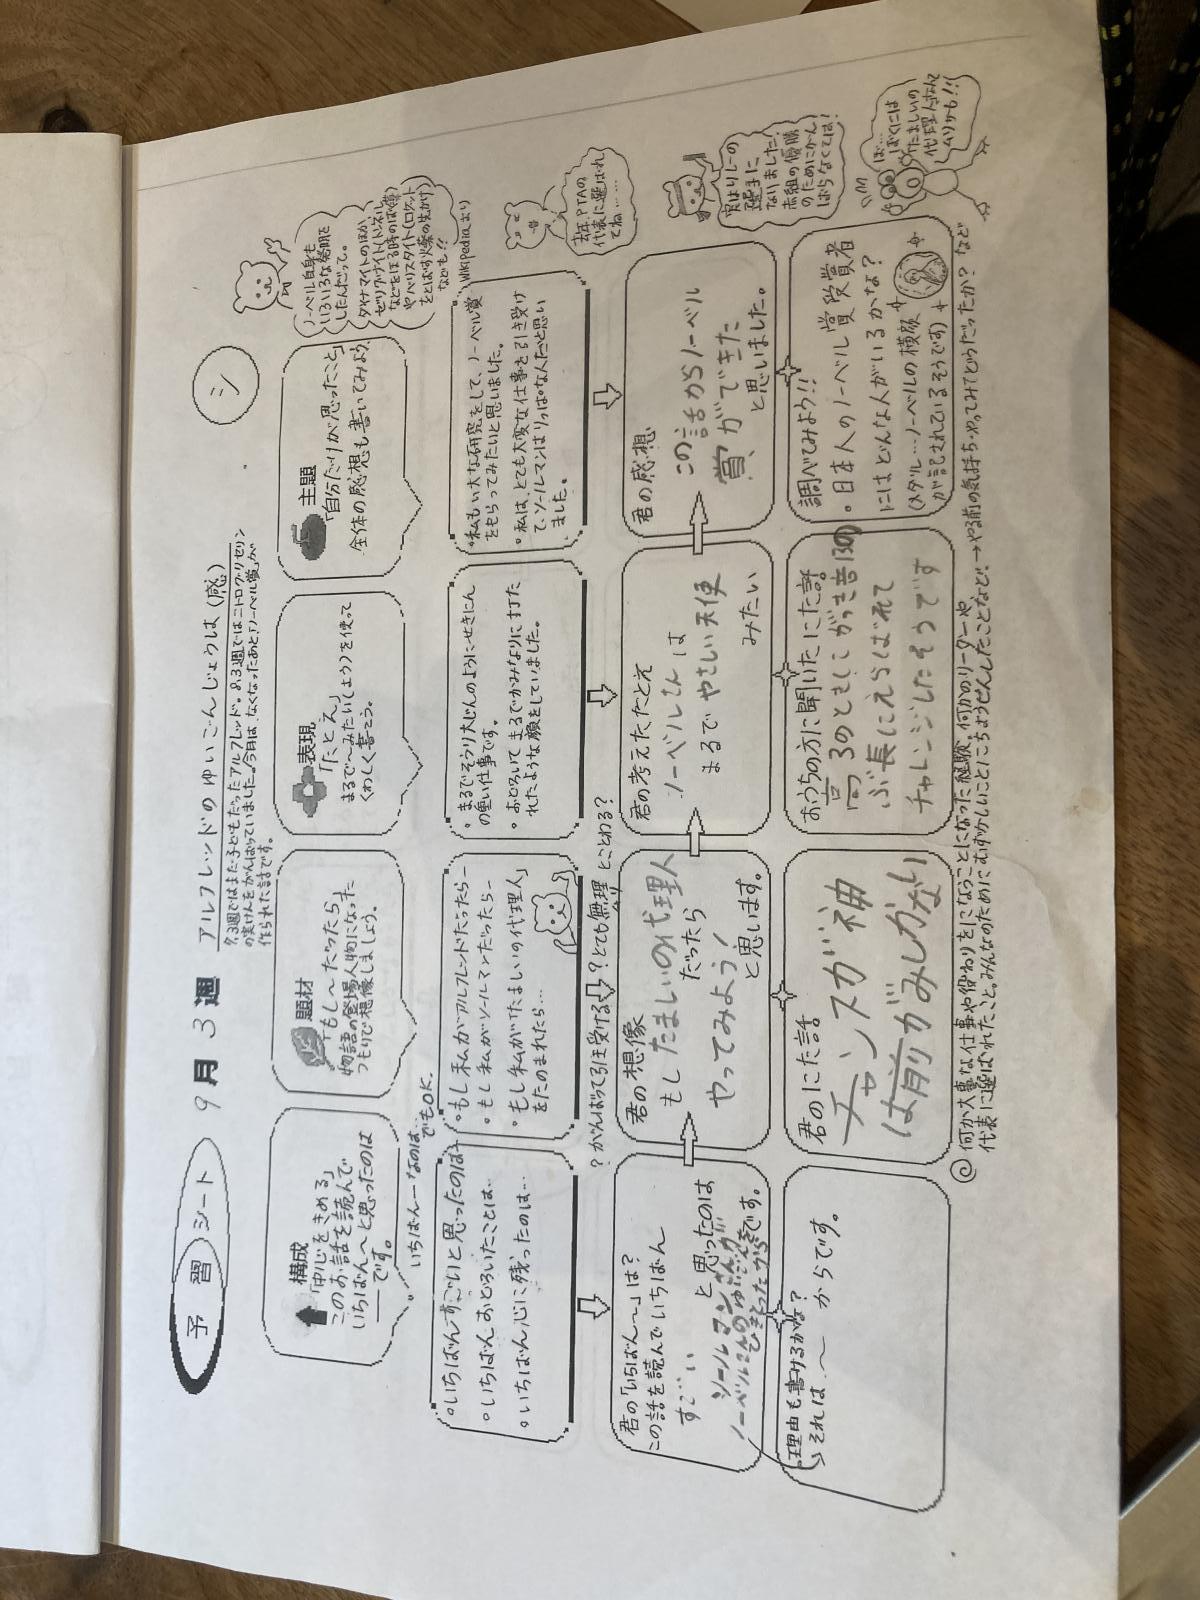 予習シート 9月3週 アルフレッドのゆいごんじょうは(感)
シ
8.3週ではまだ子どもだったアルフレッド。8.3週ではニトログリセリン
の実けんをがんばっていました。今月は、なくなったあと「ノーベル賞」が
作られた話です。
構成
「中心をきめる」
このお話を読んで
いちばん〜と思ったのは
――です。
いちばん――なのは…
でもOK.
題材
「もし〜だったら」
物語の登場人物になった
つもりで想像しましょう。
表現
「たとえ」
まるで〜みたい(しょう)を使って
くわしく書こう。
主題
「自分だけが思ったこと」
全体の感想も書いてみよう
ノーベル自身も
いろいろな発明を
したんだって。
ダイナマイトのほか
ゼリグナイト(トンネル
などをほる時のばく弾)
やバリスタイト(ロケット
をとばす火薬の先がけ)
なども!!
Wikipediaより
・いちばんすごいと思ったのは…
・いちばんおどろいたことは…
・いちばん心に残ったのは…
・もし私がアルフレッドだったら―
・もし私がソールマンだったら―
・もし私が「たましいの代理人」
をたのまれたら…
・まるでそうり大じんのようにせきにん
の重い仕事です。
・おどろいてまるでかみなりに打た
れたような顔をしていました。
・私もい大な研究をして、ノーベル賞
をもらってみたいと思いました。
・私は、とても大変な仕事を引き受け
てソールマンはりっぱな人だと思い
ました。
去年PTAの
代表に選ばれ
てね……
?がんばって引き受ける? とても無理
ムリ
とことわる?
君の「いちばん〜」は?
この話を読んでいちばん
すごい
と思ったのは
ソールマンさんが
ノーベルさんのゆいごんを
ひきとったからです。
君の想像
もしたましいの代理人
だったら
やってみよう!
と思います。
君の考えたたとえ
ノーベルさんは
まるでやさしい天使
みたい
君の感想
この話からノーベル
賞ができた
と思いました。
ぼくはリレーの
選手に
なりました!
赤組の優勝
のためにがん
ばらなくては!
理由も書けるかな?
それは〜 からです。
君のにた話
チャンスが神
は前がみしかない
おうちの方に聞いたにた話
高3のときしこがっき音130の
ぶ長にえらばれて
チャレンジしたそうです
調べてみよう!!
・日本人のノーベル賞受賞者
にはどんな人がいるかな?
(メダル…ノーベルの横顔
が記されているそうです)
ぼ…
ぼくには
たましいの
代理人なんて
ムリかも!!
◎何か大事な仕事や役わりをになうことになった経験、何かのリーダーや
代表に選ばれたこと、みんなのためにむずかしいことにちょうせんしたことなど!→やる前の気持ち・やってみてどうだったか?など